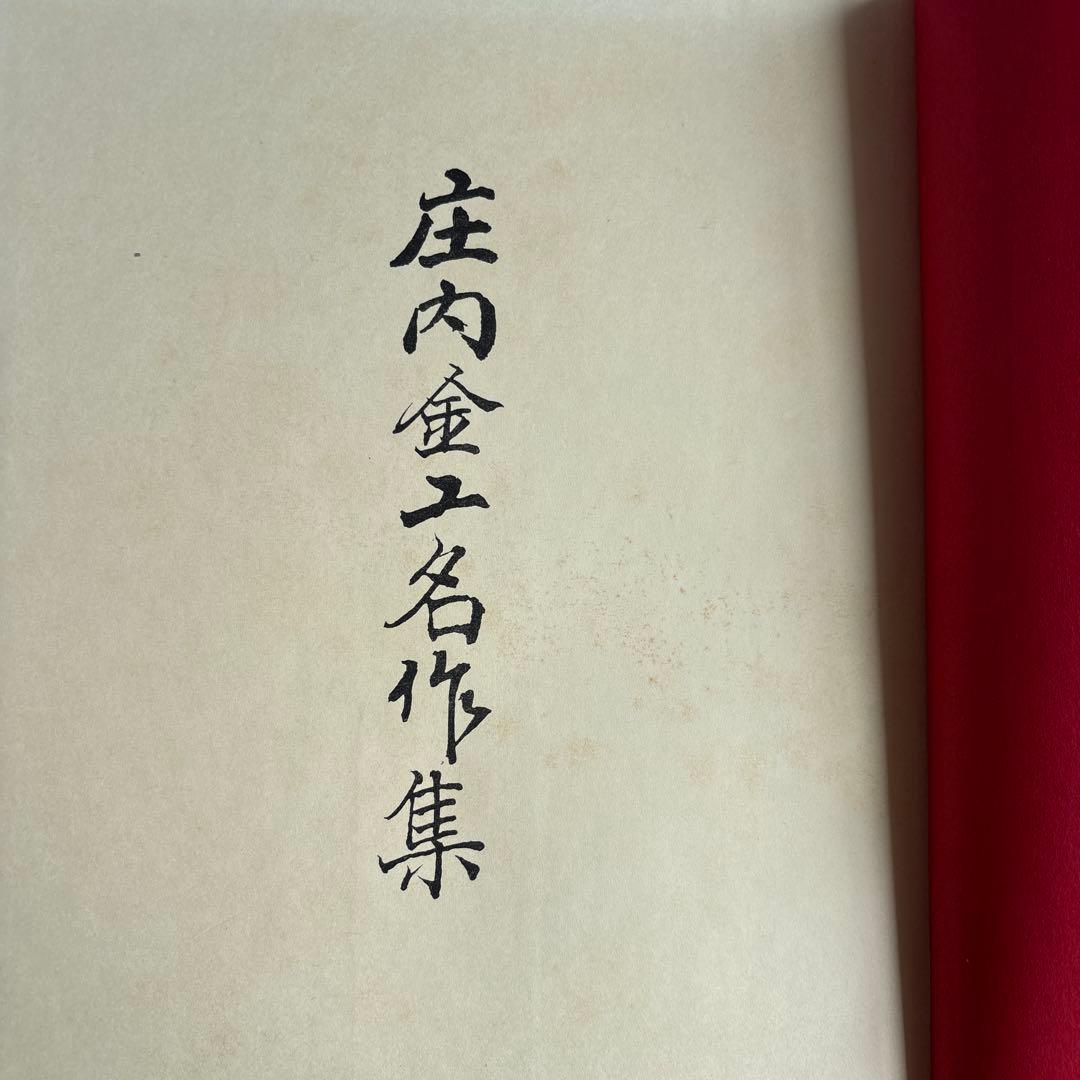 庄内金工名作集